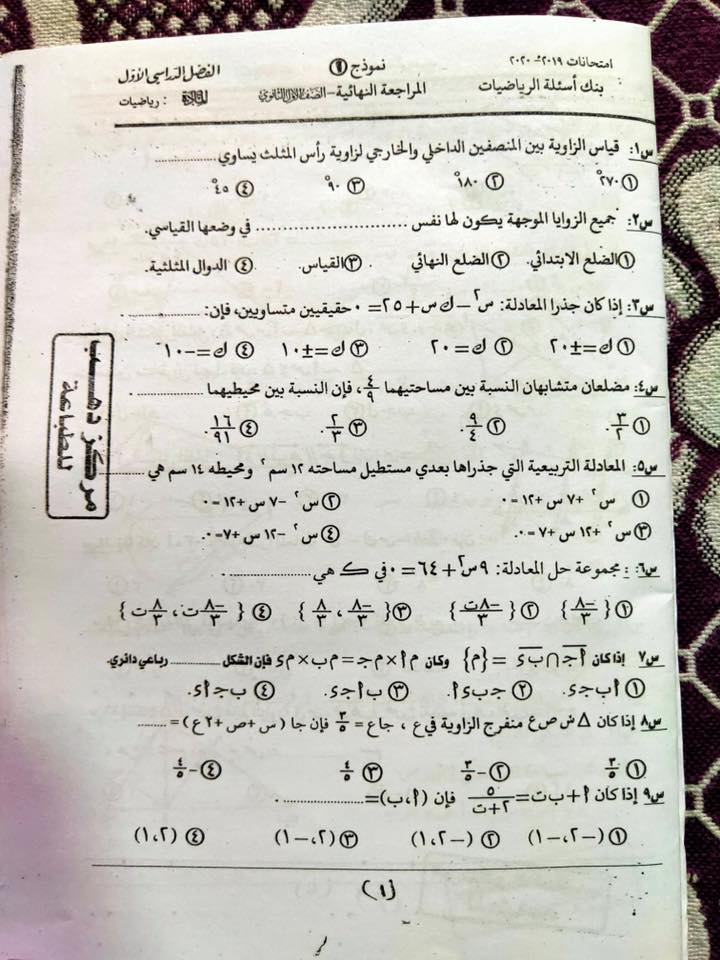 امتحانات ٢٠١٩-٢٠٢٠ نموذج (١) الفصل الدراسي الأول
بنك أسئلة الرياضيات المراجعة النهائية - الصف الأول الثانوي المادة : رياضيات
س١: قياس الزاوية بين المنصفين الداخلي والخارجي لزاوية رأس المثلث يساوي ............
① ٢٧٠° ② ١٨٠° ③ ٩٠° ④ ٤٥°
س٢: جميع الزوايا الموجهة يكون لها نفس .................... في وضعها القياسي.
① الضلع الابتدائي. ② الضلع النهائي ③ القياس. ④ الدوال المثلثية.
س٣: إذا كان جذرا المعادلة: س² - ك س + ٢٥ = ٠ حقيقيين متساويين، فإن: ............
① ك = ±٢٠ ② ك = ٢٠ ③ ك = ±١٠ ④ ك = -١٠
س٤: مضلعان متشابهان النسبة بين مساحتيهما ٤/٩، فإن النسبة بين محيطيهما ............
① ٣/٢ ② ٩/٤ ③ ٢/٣ ④ ١٦/٩١
س٥: المعادلة التربيعية التي جذراها بعدي مستطيل مساحته ١٢ سم² ومحيطه ١٤ سم هي ............
① س² + ٧ س + ١٢ = ٠ ② س² - ٧ س + ١٢ = ٠
③ س² + ١٢ س + ٧ = ٠. ④ س² - ١٢ س + ٧ = ٠.
س٦: مجموعة حل المعادلة: ٩ س² + ٦٤ = ٠ في ك هي ............
① {-٨/٣} ② {-٨/٣ ت} ③ {-٨/٣، ٨/٣} ④ {-٨/٣ ت، ٨/٣ ت}
س٧ إذا كان أجـ ∩ بء = {م} وكان م أ × م جـ = م ب × م ء فإن الشكل ............ رباعي دائري.
① أ ب ج ء. ② ج ب ء أ. ③ ب أ ج ء. ④ ب ج أ ء.
س٨ إذا كان Δ س ص ع منفرج الزاوية في ع ، جا ع = ٣/٥ فإن جا ( س + ص + ٢ ع ) = ........
① ٣/٥ ② -٣/٥ ③ ٤/٥ ④ -٤/٥
س٩ إذا كان أ + ب ت = ٥/(٢+ت) فإن (أ، ب) = ............
① (-٢، -١) ② (-٢، ١) ③ (٢، -١) ④ (٢، ١)
(١)
مركز دهب
للطباعة